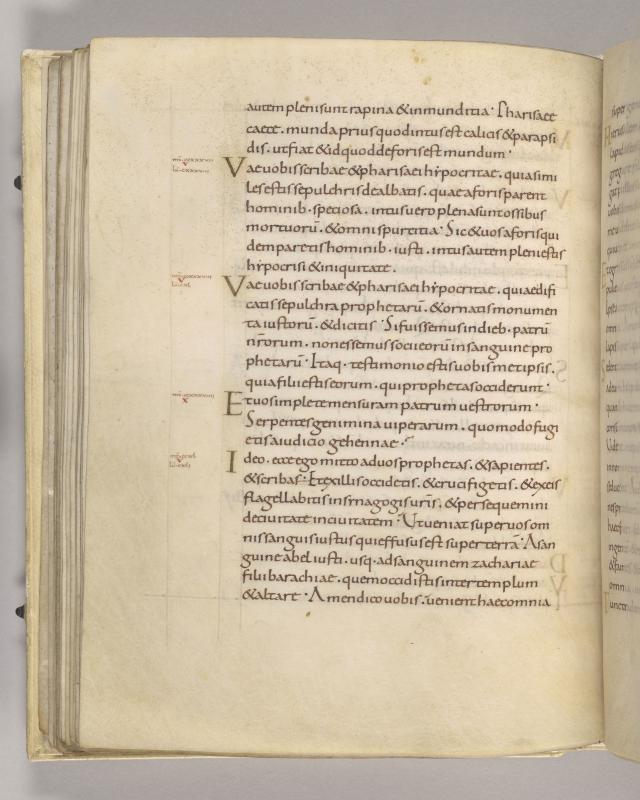 autem plenisunt rapina &inmunditia· Pharisaee
caece. munda prius quod intus est calicis &parapsi
dis. ut fiat &id quod deforis est mundum·
Vae uobis scribae &pharisaei hypocritae. quia simi
les estis sepulchris dealbatis. quae aforis parent
hominib· speciosa. intus uero plena sunt ossibus
mortuorū. &omni spurcitia· Sic &uos aforis qui
dem paretis hominib· iusti. intus autem pleni estis
hypocrisi &iniquitate.
Vae uobis scribae &pharisaei hypocritae. quia edifi
catis sepulchra prophetarū. &ornatis monumen
ta iustorū. &dicitis· Si fuissemus indieb· patrū
nr̄orum. non essemus socii eorū insanguine pro
phetarū· Itaq· testimonio estis uobis metipsis.
quia filii estis eorum. qui prophetas occiderunt·
Et uos implete mensuram patrum uestrorum·
Serpentes genimina uiperarum. quomodo fugi
etis aiudicio gehennae·
Ideo. ecce ego mitto aduos prophetas. &sapientes.
&scribas· Et ex illis occidetis. &crucifigetis. &ex eis
flagellabitis insynagogis uris. &persequemini
deciuitate inciuitatem· Ut ueniat super uos om
nis sanguis iustus qui effusus est super terrā· Asan
guine abel iusti. usq· ad sanguinem zachariae
filii barachiae. quem occidistis inter templum
&altare· Amen dico uobis. uenient haec omnia